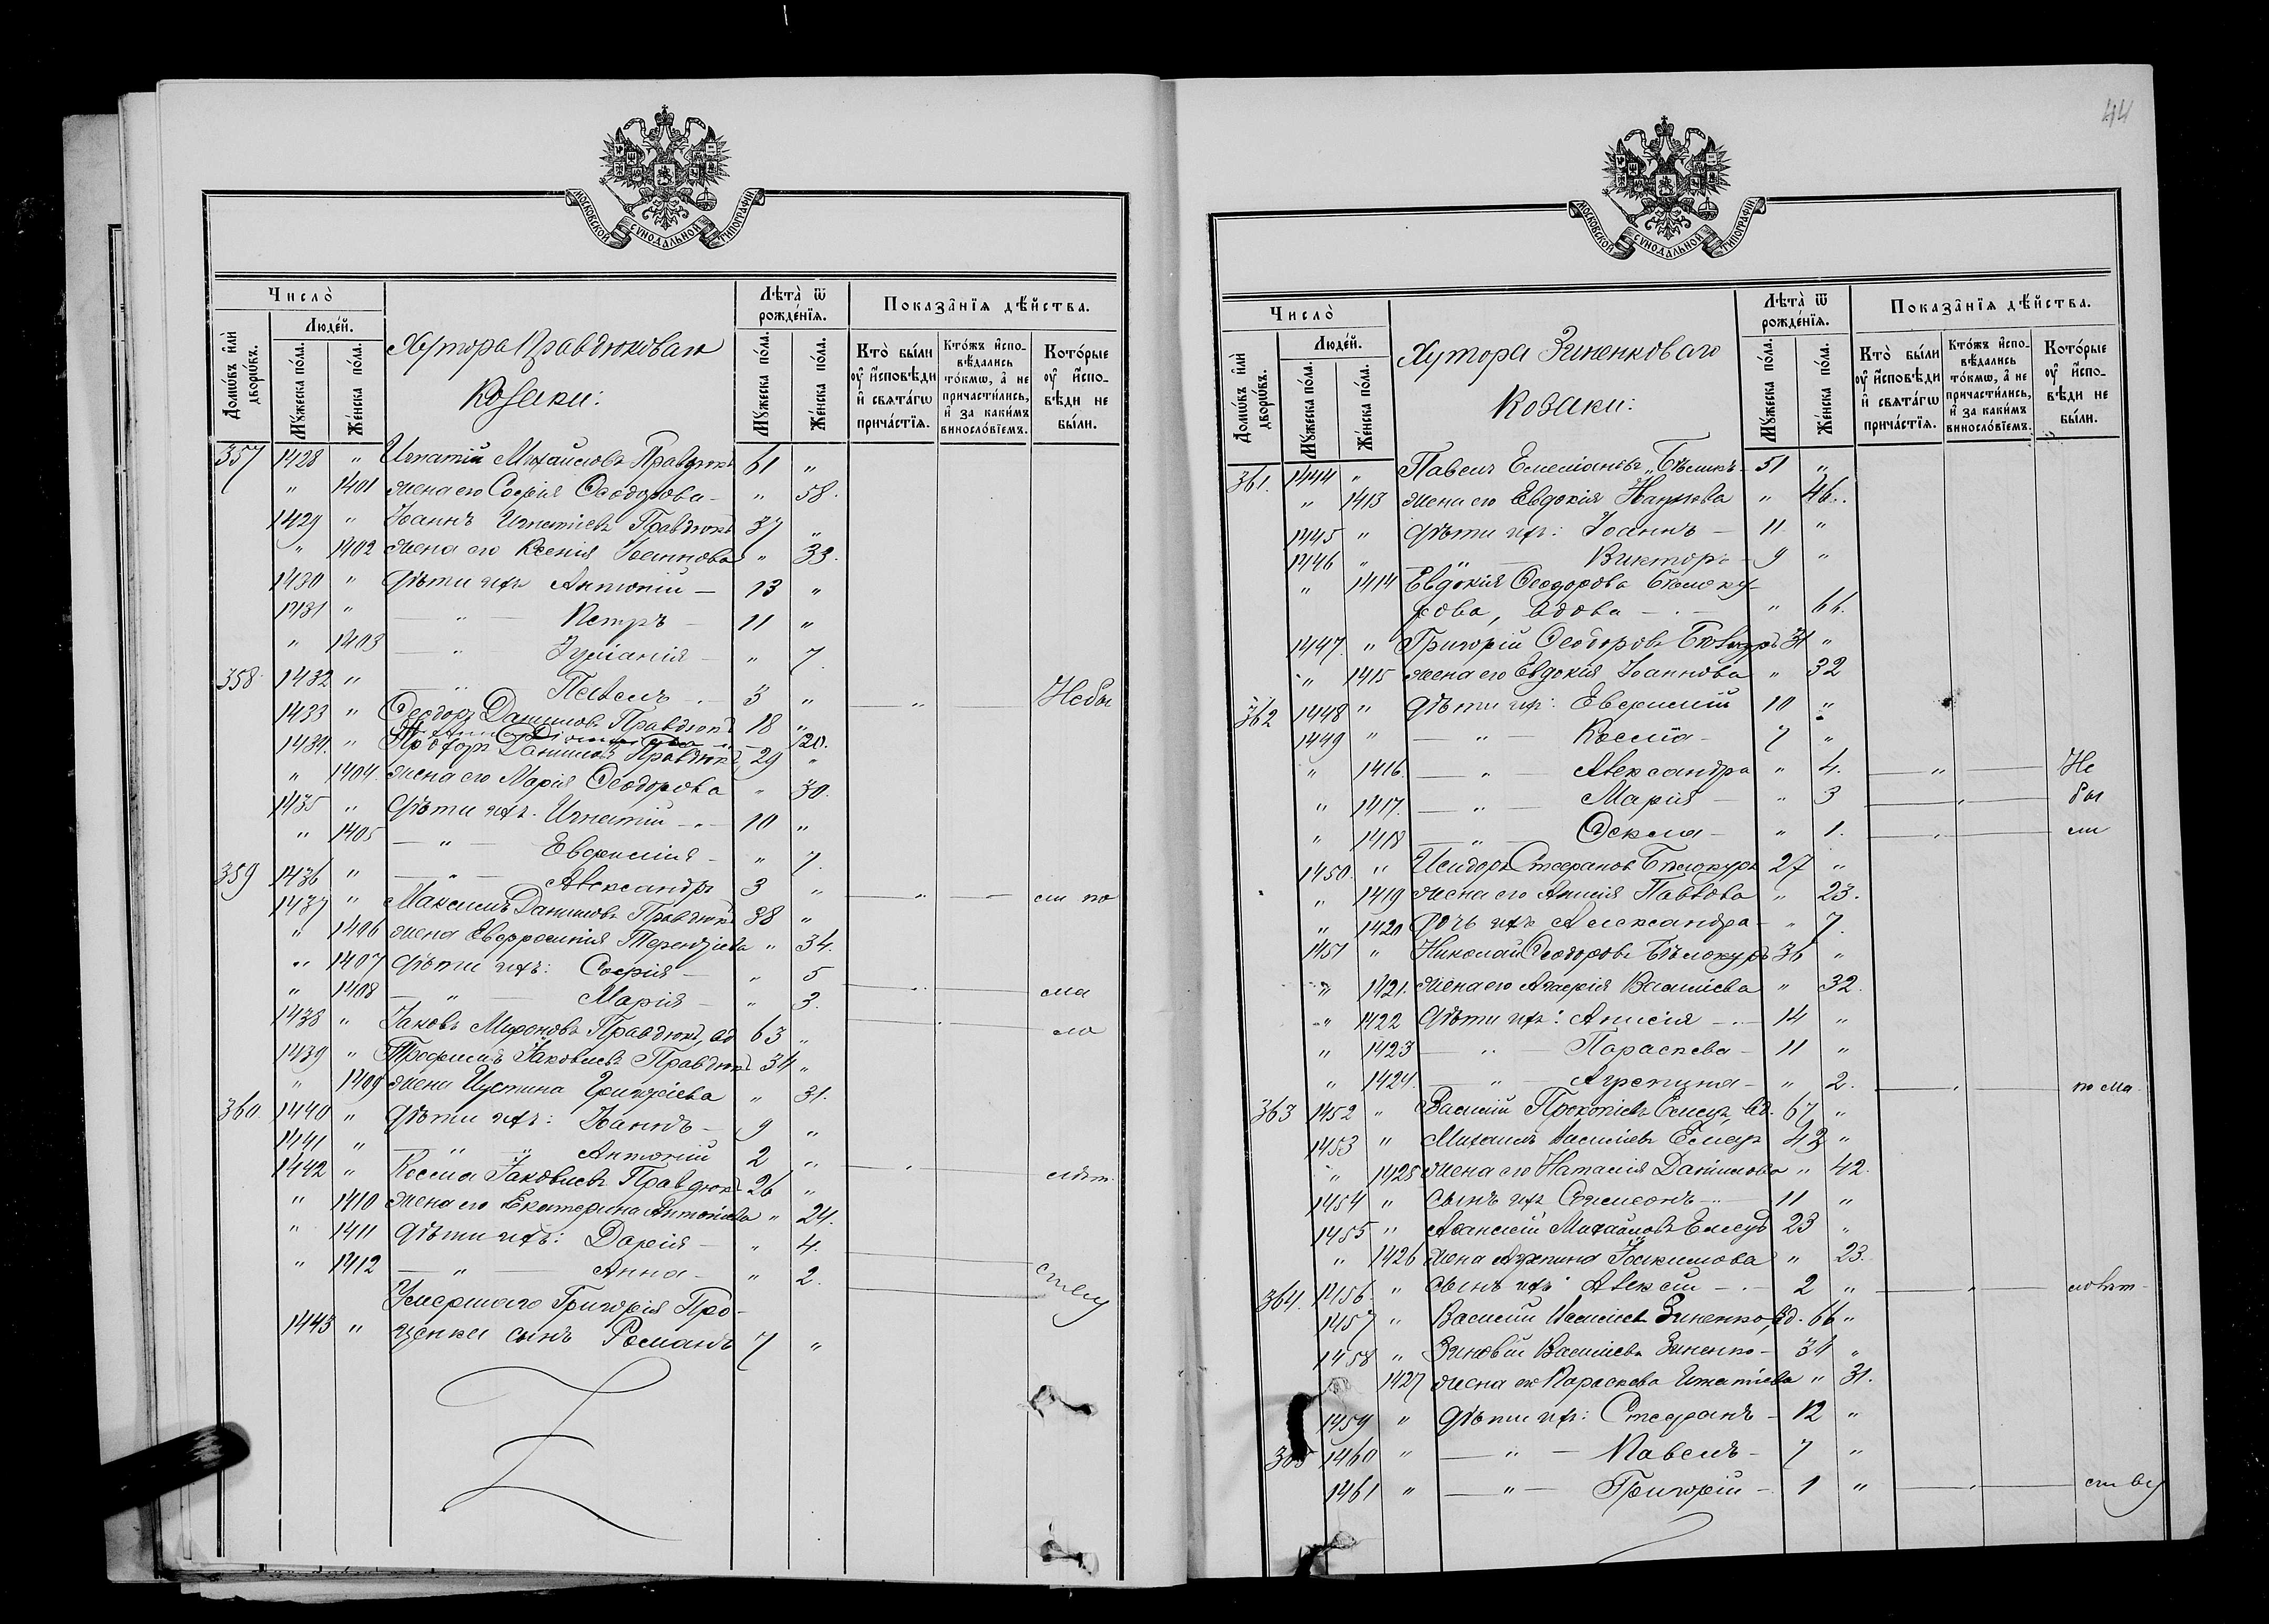 44
МОСКОВСКОЙ СУНОДАЛЬНОЙ ТИПОГРАФІИ
Число̀
Людéй.
Домѡ́въ и҆лѝ дворѡ́въ.
Мꙋ́жеска по́ла.
Же́нска по́ла.
Хутора Правдюковаго
Козаки:
Лѣта̀ ѿ рождéнїѧ.
Мꙋ́жеска по́ла.
Же́нска по́ла.
Показа̂нїѧ дѣ́йства.
Кто̀ бы́ли оу҆ и҆сповѣ́ди и҆ свѧта́гѡ прича́стїѧ.
Кто́жъ и҆сповѣ́дались то́кмѡ, а҆ не причасти́лись, и҆ за каки́мъ винослóвїемъ.
Кото́рые оу҆ и҆сповѣ́ди не бы́ли.
357 1428 " Игнатій Михайловъ Правдюкъ 61 "
" 1401 жена его Софія Ѳеодорова - " 58.
1429 " Іоаннъ Игнатіевъ Правдюкъ 37 "
" 1402 жена его Ксенія Іоаннова " 33.
1430 " Дѣти ихъ Антоній — 13 "
1431 " — " — Петръ - 11 "
" 1403 — " — Іуліанія - " 7.
358 1432 " — " — Павелъ - 3 " — " — Небы
1433 " Ѳеодоръ Даниловъ Правдюкъ 18 "
20.
1434. " Даниловъ Правдюкъ 29 "
" 1404. жена его Марія Ѳеодорова " 30.
1435 " Дѣти ихъ. Игнатій - 10 "
" 1405 — " — Евфимія - " 7.
359 1436 " — " — Александръ 3 " — " — ли по
1437 " Максимъ Даниловъ Правдюкъ 38 "
" 1406 жена Евфросинія Терентіева " 34.
" 1407 Дѣти ихъ: Софія - " 5
" 1408 — " — Марія - " 3. ма
1438 " Іаковъ Мироновъ Правдюкъ, вд 63 " ло
1439 " Трофимъ Іаковлевъ Правдюкъ 34 "
" 1409 жена Іустина Григоріева " 31.
360. 1440 " Дѣти ихъ: Іоаннъ - 9 "
1441 " — " — Антоній 2 " — " — лѣт
1442 " Косма Іаковлевъ Правдюкъ 26 "
" 1410 жена его Екатерина Антоніева " 24.
" 1411 Дѣти ихъ: Дарія - " 4.
" 1412 — " — Анна - " 2. ству
Умершаго Григорія Про-
1443 " ценка сынъ Романъ 7 "
МОСКОВСКОЙ СУНОДАЛЬНОЙ ТИПОГРАФІИ
Число̀
Людéй.
Домѡ́въ и҆лѝ дворѡ́въ.
Мꙋ́жеска по́ла.
Же́нска по́ла.
Хутора Зиненковаго
Козаки:
Лѣта̀ ѿ рождéнїѧ.
Мꙋ́жеска по́ла.
Же́нска по́ла.
Показа̂нїѧ дѣ́йства.
Кто̀ бы́ли оу҆ и҆сповѣ́ди и҆ свѧта́гѡ прича́стїѧ.
Кто́жъ и҆сповѣ́дались то́кмѡ, а҆ не причасти́лись, и҆ за каки́мъ винослóвїемъ.
Кото́рые оу҆ и҆сповѣ́ди не бы́ли.
361. 1444 " Павелъ Емеліановъ 51 "
" 1413 жена его Евдокія Наумова " 46.
1445 " Дѣти ихъ: Іоаннъ — 11 "
1446 " — " — Викторъ - 9 "
" 1414 Евдокія Ѳеодорова Бѣлоку-
рова, вдова — " 66.
1447. " Григорій Ѳеодоровъ Бѣлокуръ 31 "
" 1415 жена его Евдокія Іоаннова " 32
362 1448 " Дѣти ихъ: Евфимій 10 "
1449 " — " — Косма - 7 "
" 1416. — " — Александра " 4. — " — Не
" 1417. — " — Марія " 3 — " — бы
" 1418 — " — Ѳекла - " 1. — " — ли
1450 " Исидоръ Стефановъ Бѣлокуръ 27 "
" 1419 жена его Анисія Павлова " 23.
" 1420 Дочь ихъ Александра - " 7.
1451 " Николай Ѳеодоровъ Бѣлокуръ 36 "
" 1421. жена его Агафія Василіева " 32.
" 1422 Дѣти ихъ: Анисія - 14 "
" 1423 — " — Параскева - 11 "
" 1424. — " — Агрепина - " 2. — " — по ма
363 1452 " Василій Прокопіевъ Емецъ, вд. 67 "
1453 " Михаилъ Василіевъ Емецъ 43 "
" 1425 жена его Наталія Данилова " 42.
1454 " сынъ ихъ Симеонъ - 11 "
1455 " Аѳанасій Михайловъ Емецъ 23 "
" 1426 жена Агрепина Іоакимова " 23.
364. 1456. " сынъ ихъ Алексій - 2 " — " — лолѣт
1457 " Василій Василіевъ Зиненко, вд. 66 "
1458 " Зиновій Василіевъ Зиненко - 34 "
1427 жена его Параскева Игнатіева " 31.
1459 " Дѣти ихъ: Стефанъ - 12 "
365 1460 " — " — Павелъ - 7 "
1461 " — " — Григорій - 1 " — " — ству